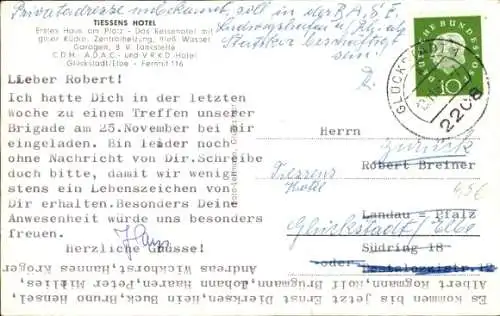 Privatadresse unbekannt, soll in der B.A.S.F.
Ludwigshafen
beschäftigt
sein!
TIESSENS HOTEL
Erstes Haus am Platz - Das Reisehotel mit
guter Küche, Zentralheizung, fließ. Wasser
Garagen, B.V. Tankstelle
C.D.H. - A.D.A.C. - und V.R.K.D.-Hotel
Glückstadt/Elbe - Fernruf 116
DEUTSCHE BUNDESPOST
10
GLÜCKSTADT
2208
Lieber Robert!
Ich hatte Dich in der letzten
Woche zu einem Treffen unserer
Brigade am 25.November bei mir
eingeladen. Bin leider noch
ohne Nachricht von Dir.Schreibe
doch bitte, damit wir wenig
stens ein Lebenszeichen von
Dir erhalten.Besonders Deine
Anwesenheit würde uns besonders
freuen.
Herzliche Grüsse!
Herrn
Zurück
Robert Breiner
Tiessens
Hotel
Landau = Pfalz
Glückstadt/Elbe
Südring 18
oder Pestalozzistr.12
Es kommen bis jetzt Ernst Dierksen,Hein Buck,Bruno Hensel,
Albert Hogmann,Rolf Brügmann,Johann Haaren,Peter Mielies,
Andreas Wickhorst,Hannes Kröger